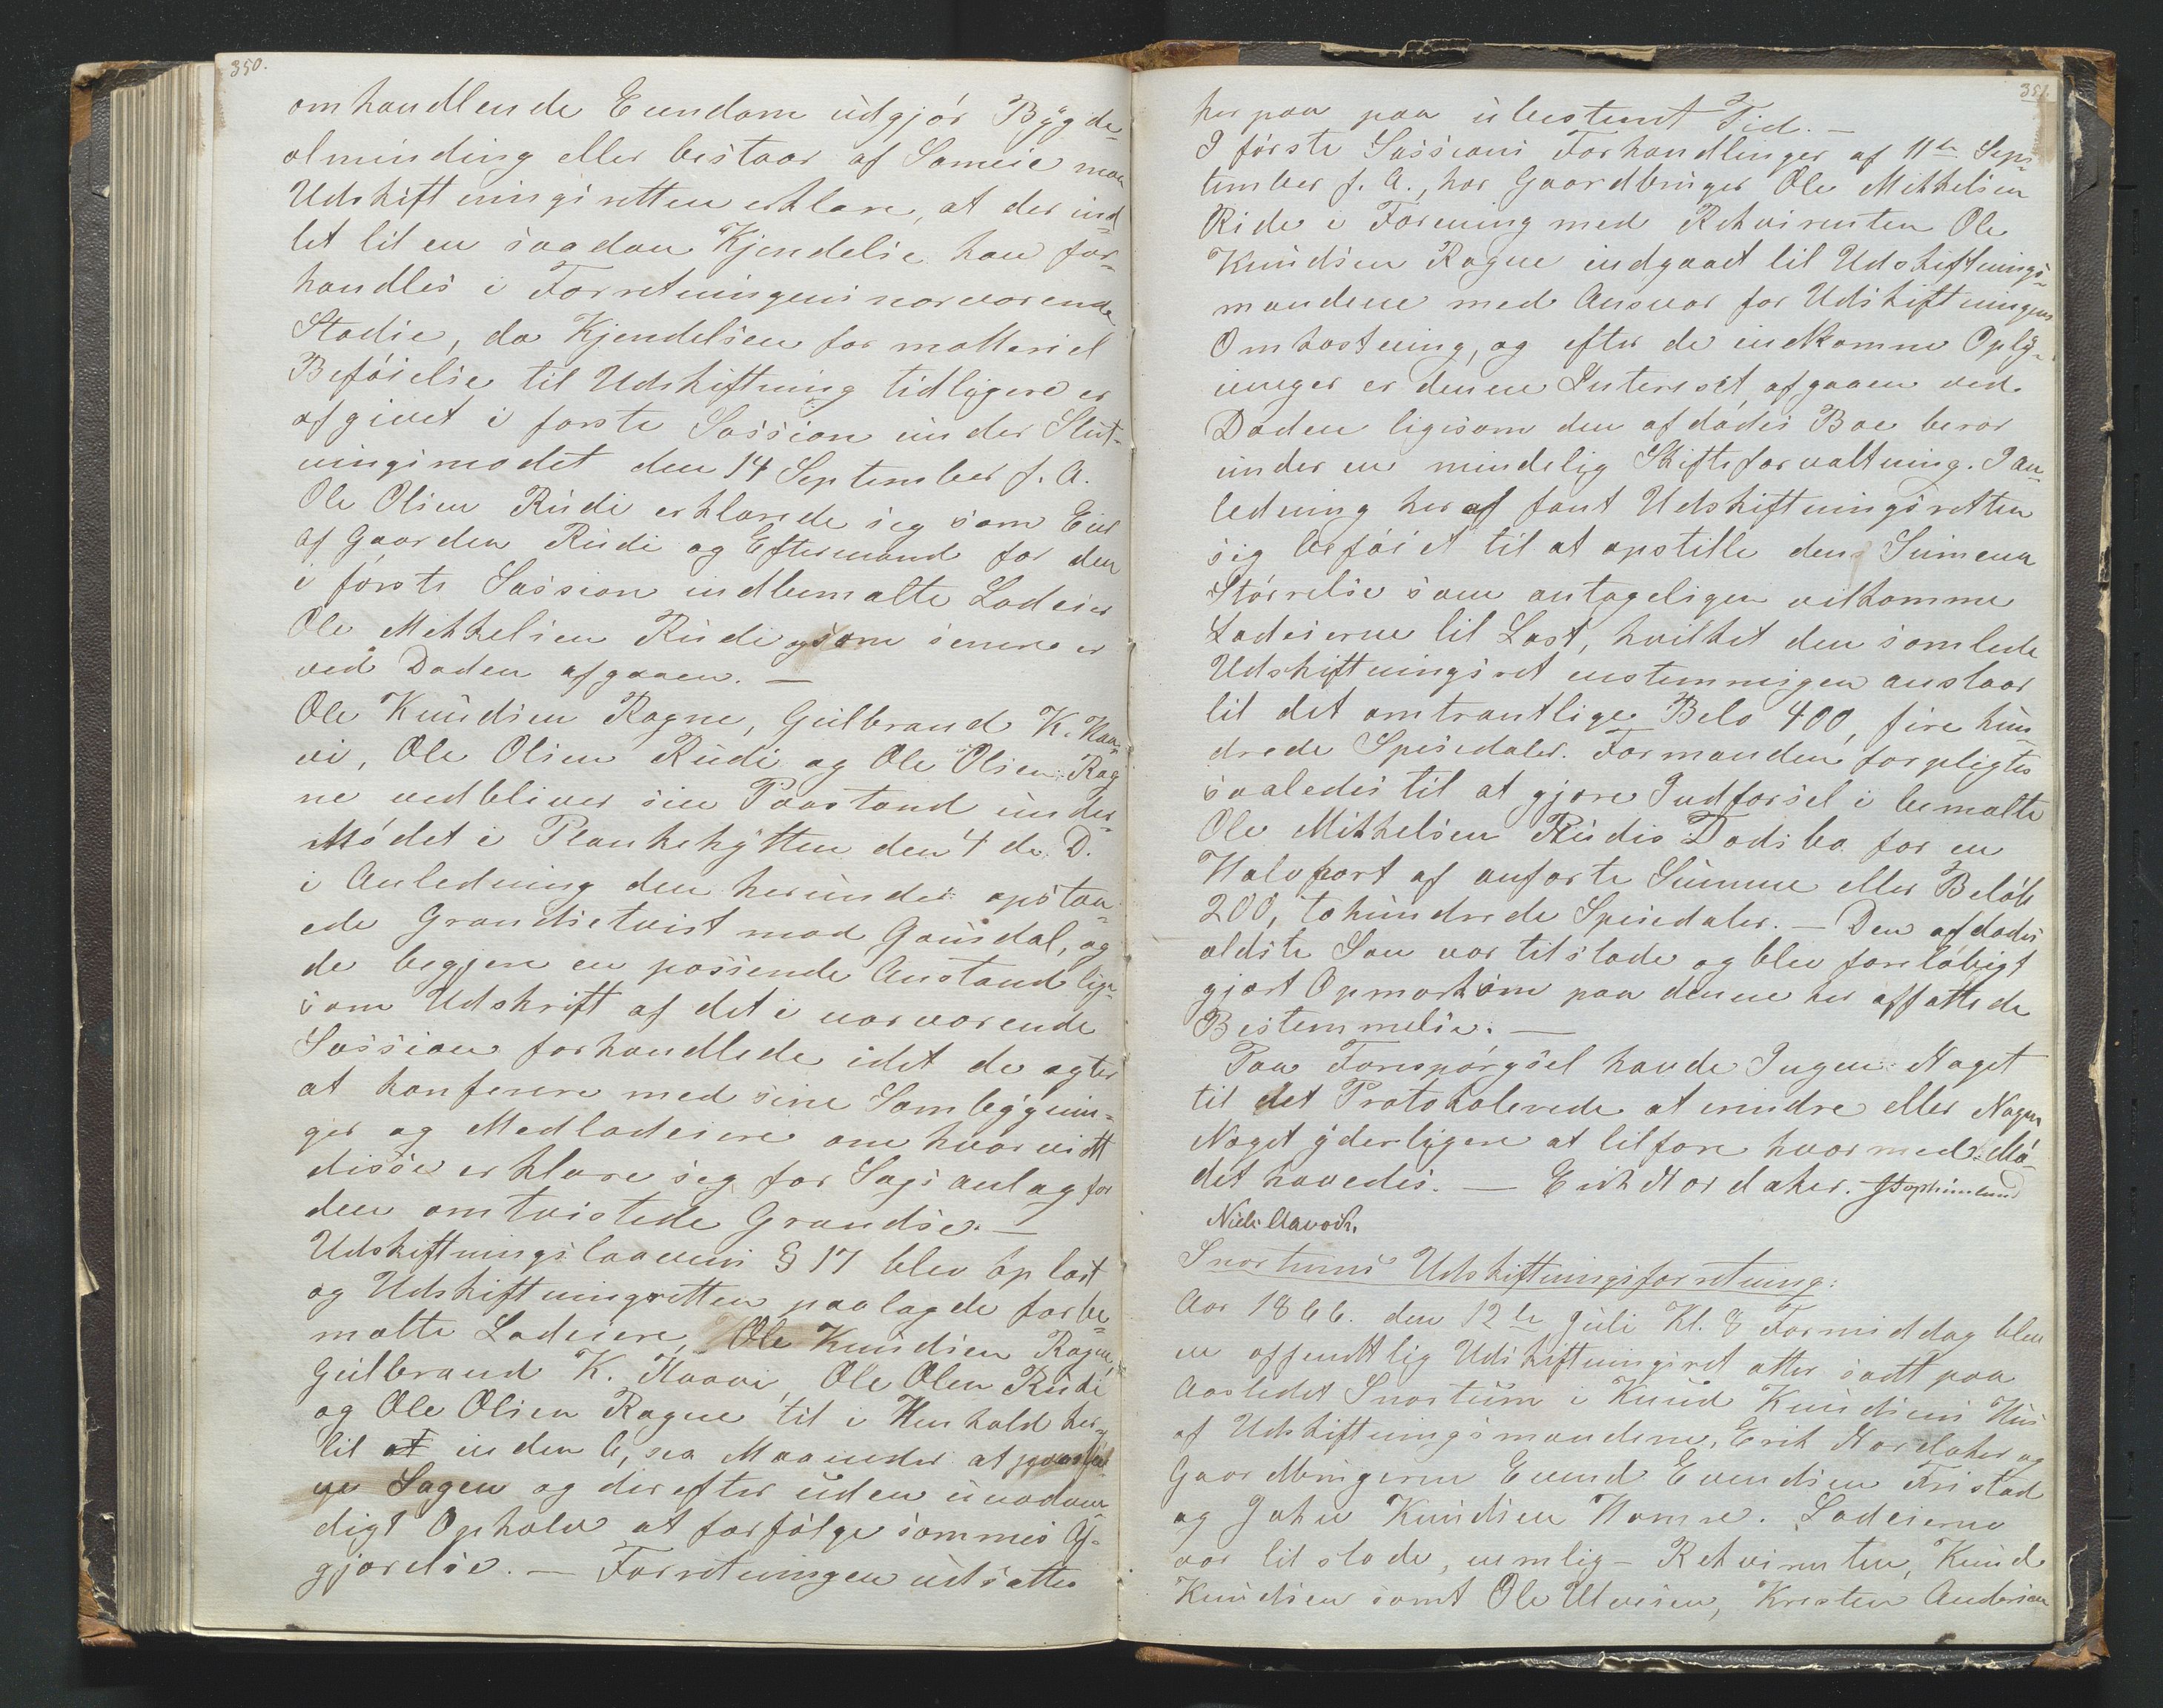 350.
omhandlende Eiendom udgjør Bygde-
alminding eller bestaar af Sameie maa
Udskiftningsretten erklære, at der ind-
tet til en saadan Kjendelse kan for-
handles i Forretningens nærværende
Stadie, da Kjendelsen for matteriel
Beføielse til Udskiftning tidligere er
afgivet i første Session under Slut-
ningsmødet den 14 September f. A.
Ole Olsen Rudi erklærede sig som Eier
af Gaarden Rudi og Eftermand for den
i første Session indbemælte Lodeier
Ole Mikkelsen Rudi som senere er
ved Døden afgaaen. —
Ole Knudsen Ragne, Gulbrand K. Haa-
vi, Ole Olsen Rudi og Ole Olsen Rag-
ne vedbliver sin Paastand under
Mødet i Plankehytten den 4 de D.
i Anledning den herunder opstaa-
ede Grændsetvist mod Gausdal, og
de begjære en passende Anstand lige-
som Udskrift af det i nærværende
Session forhandlede idet de agter
at konferere med sine Sambygnin-
ger og Medlodeiere om hvorvidt
disse erklære sig for Sagsanlæg for
den omtvistede Grændse. —
Udskiftningslovens § 17 blev oplæst
og Udskiftningsretten paalagde forbe-
mælte Lodeiere, Ole Knudsen Ragne,
Gulbrand K. Haavi, Ole Olsen Rudi
og Ole Olsen Ragne til i Henhold her-
til at inden 6, sex Maaneder at
Sagen og derefter uden unødven-
digt Ophold at forfølge sammes Af-
gjørelse. — Forretningen udsættes
351.
herpaa paa ubestemt Tid. —
I første Sessions Forhandlinger af 11te Sep-
tember f. A., har Gaardbruger Ole Mikkelsen
Ride i Forening med Rekvirenten Ole
Knudsen Ragne indgaaet til Udskiftnings-
mændene med Ansvar for Udskiftningens
Omkostning, og efter de indkomne Oplys-
ninger er denne Interesset afgaaen ved
Døden ligesom den afdødes Boe beror
under en mindelig Skifteforvaltning. I An-
ledning heraf fant Udskiftningsretten
sig beføiet til at opstille den Summa
Størrelse som antageligen vilkomme
Lodeierne til Last, hvilket den samlede
Udskiftningsret enstemmigen anslaar
til det omtrantlige Belø 400, fire hun-
drede Spesidaler. Formanden forpligtes
saaledes til at gjøre Indførsel i bemælte
Ole Mikkelsen Rudis Dødsbo for en
Halvpart af anførte Summe eller Beløb
200, tohundrede Spesidaler. — Den afdødes
ældste Søn var tilstæde og blev foreløbigt
gjort Opmærksom paa denne her affattede
Bestemmelse. —
Paa Forespørgsel havde Ingen Noget
til det Protokolerede at erindre eller Nogen
Noget yderligere at tilføre hvormed Mø-
det hævedes. — Erik Nordaker.
Snortums Udskiftningsforretning:
Aar 1866. den 12te Juli Kl. 8 Formiddag blev
en offentlig Udskiftningsret atter satt paa
Aastedet Snortum i Knud Knudsens Hus
af Udskiftningsmændene, Erik Nordaker og
Gaardbrugerne Evend Evendsen Fristad
og Johs Knudsen Homse. Lodeierne
var tilstæde, nemlig — Rekvirenten, Knud
Knudsen samt Ole Ulvesen, Kresten Andersen